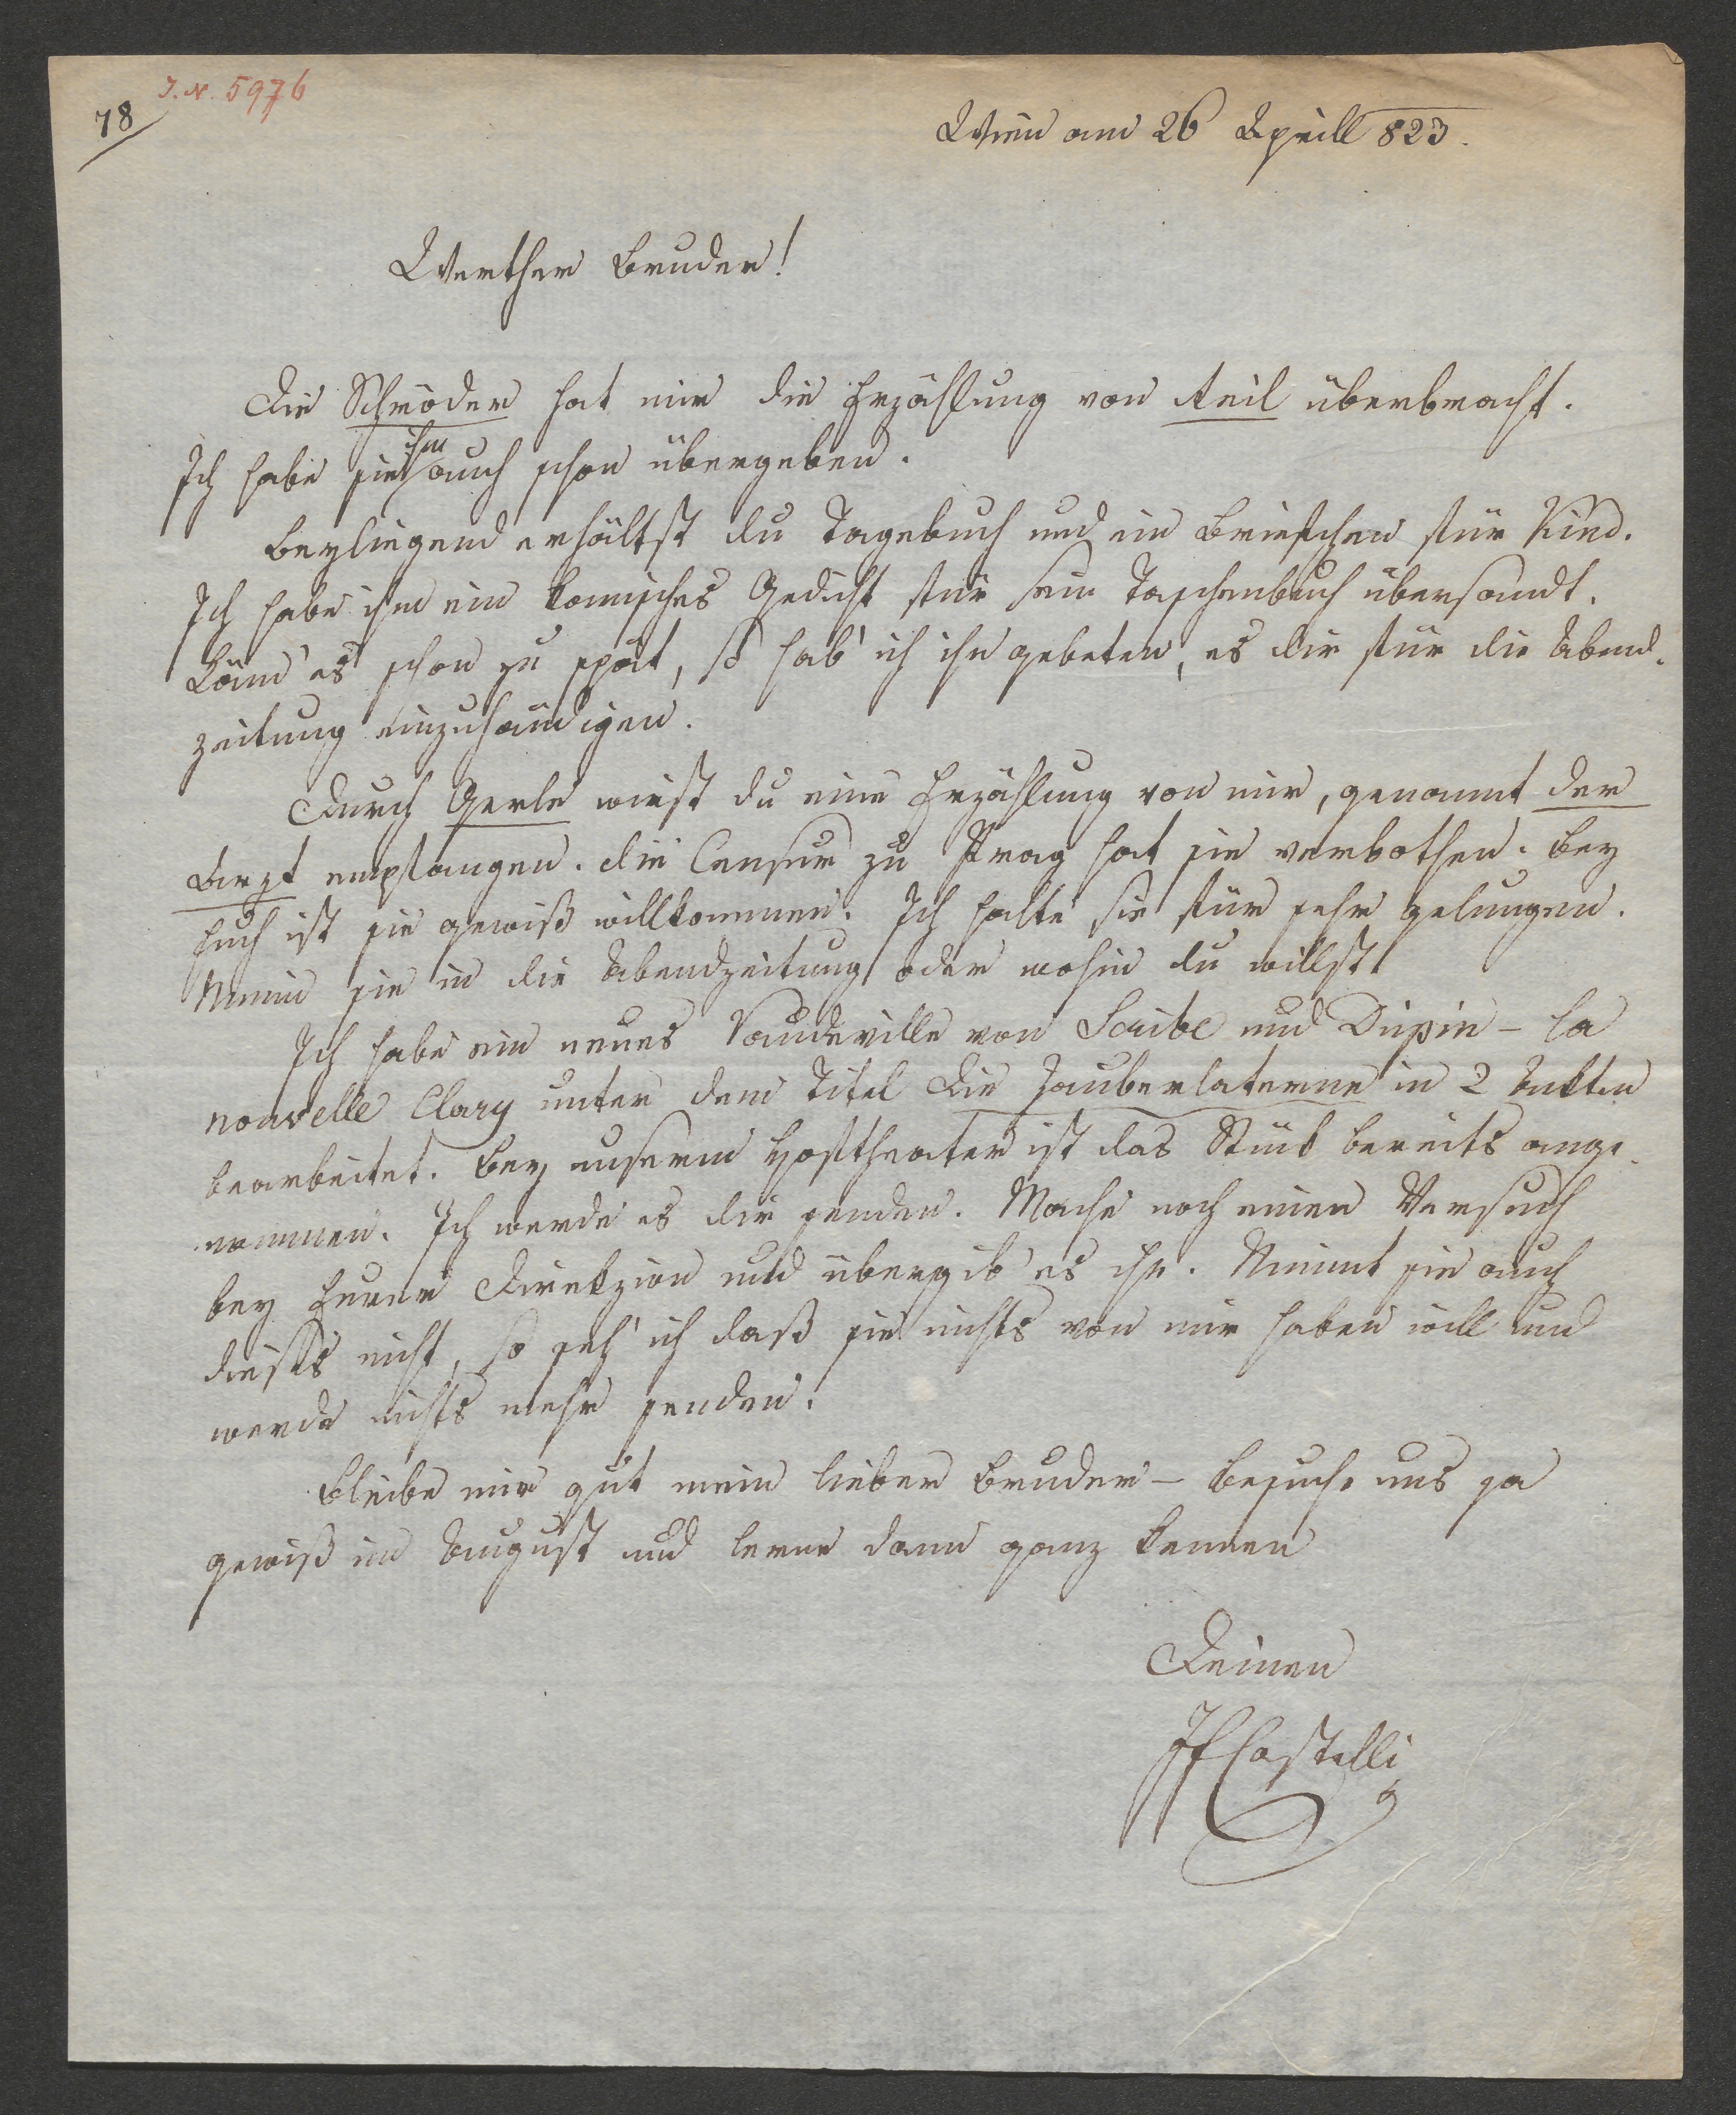 J. N. 5976
78
Wien am 26 Aprill 823.
Werther Bruder!
Die Schröder hat mir die Erzählung von Reil überbracht.
ihm
Ich habe sie auch schon übergeben.
Beyliegend erhältst du Tagebuch und ein Briefchen für Kind.
Ich habe ihm ein komisches Gedicht für sein Taschenbuch übersandt.
Käm' es schon zu spät, so hab' ich ihn gebeten, es dir für die Abend-
zeitung einzuhändigen.
Durch Gerle wirst du eine Erzählung von mir, genannt der
Arzt empfangen. die Censur zu Prag hat sie verbothen. Bey
Euch ist sie gewiß willkommen. Ich halte sie für sehr gelungen.
Nimm sie in die Abendzeitung oder wohin du willst
Ich habe ein neues Vaudeville von Scribe und Dupin – la
nouvelle Clary unter dem Titel die Zauberlaterne in 2 Akten
bearbeitet. Bey unserm Hoftheater ist das Stück bereits ange-
nommen. Ich werde es dir senden. Mache noch einen Versuch
bey Eurer Direkzion und übergib es ihr. Nimmt sie auch
dieses nicht, so seh' ich daß sie nichts von mir haben will und
werde nichts mehr senden.
Bleibe mir gut mein lieber Bruder – besuche uns ja
gewiß im August und lerne dann ganz kennen
Deinen
JFCastelli